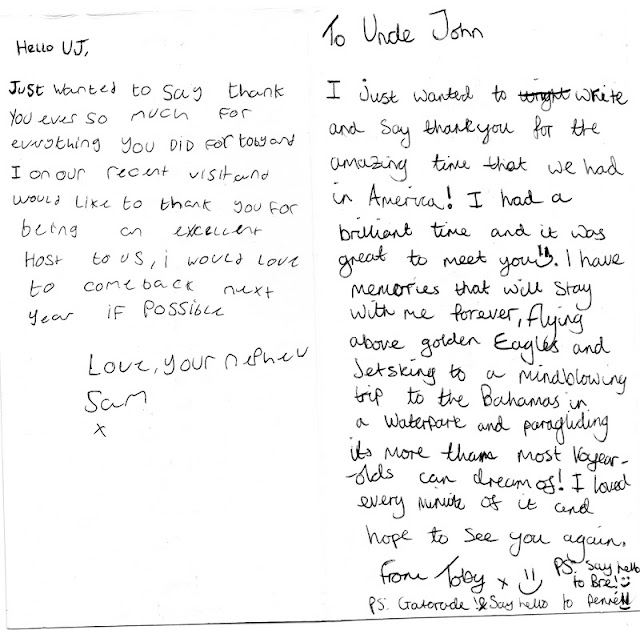 Hello UJ,
Just wanted to say thank
you ever so much for
everything you did for toby and
I on our recent visit and
would like to thank you for
being an excellent
Host to us, i would love
to come back next
year if possible
Love, your nephew
Sam
x
To Uncle John
I just wanted to wright write
and say thankyou for the
amazing time that we had
in America! I had a
brilliant time and it was
great to meet you. I have
memories that will stay
with me forever, flying
above golden Eagles and
Jetsking to a mindblowing
trip to the Bahamas in
a waterpark and paragliding
its more than most 16year-
-olds can dream of! I loved
every minute of it and
hope to see you again.
From Toby x
PS: Say hello
to Bre!
PS: Gatorade! & Say hello to